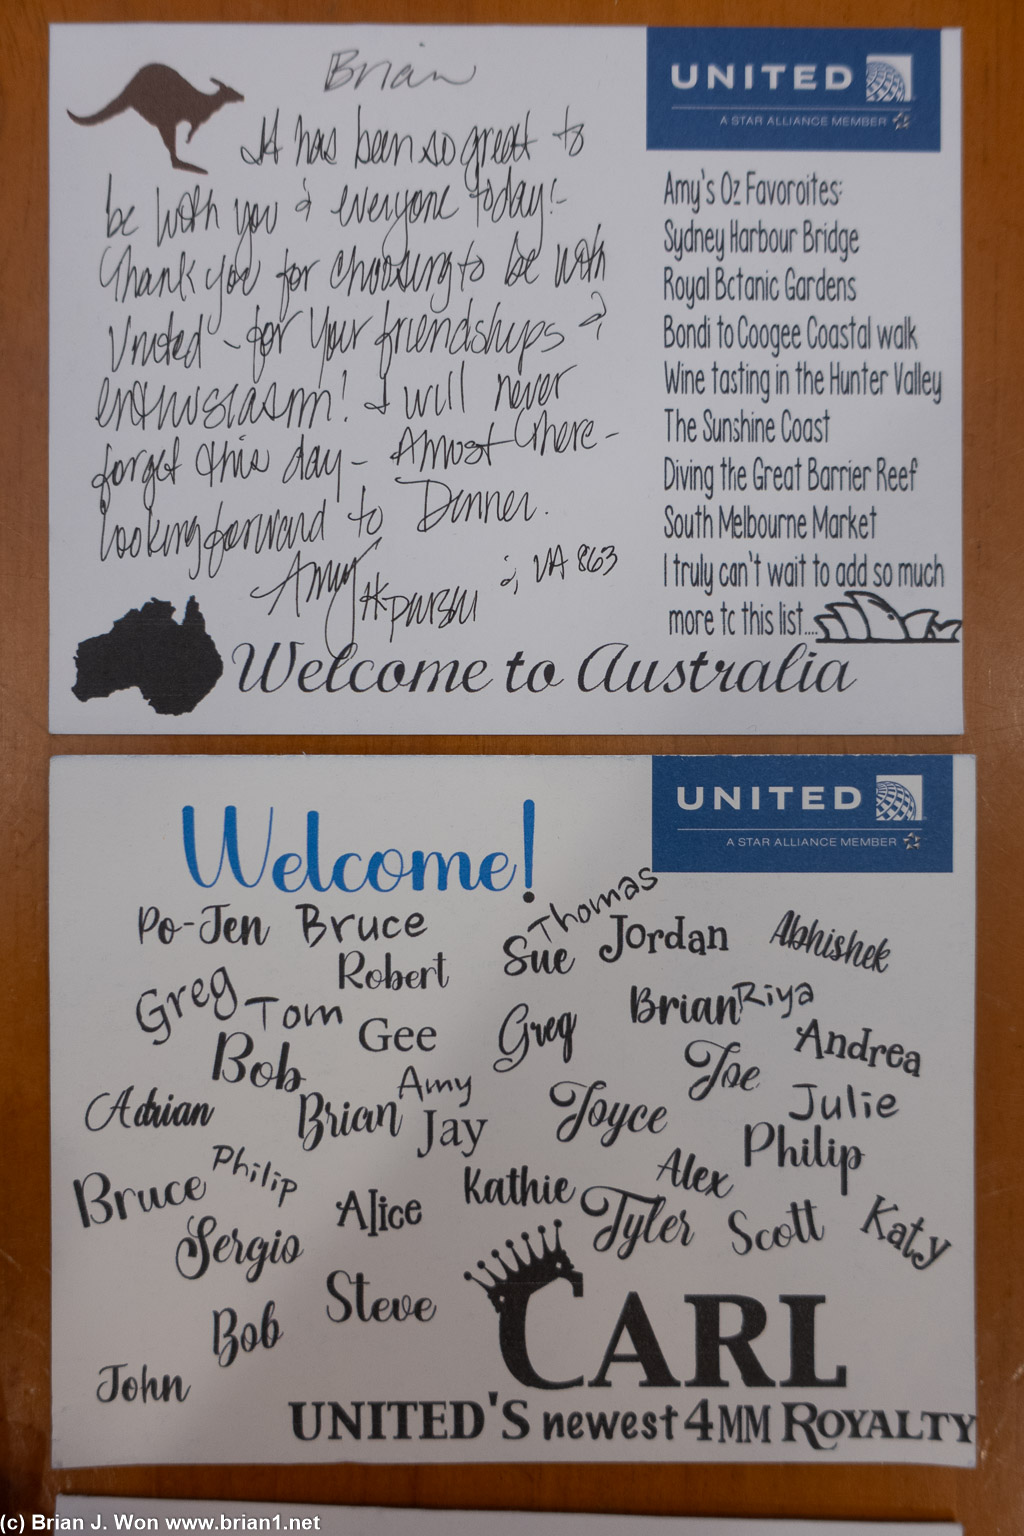 Brian
It has been so great to
be with you & everyone today!-
Thank you for choosing to be with
United - for your friendships &
enthusiasm! I will never
forget this day - Almost there -
looking forward to Dinner.
Amy
&, UA 863
UNITED
A STAR ALLIANCE MEMBER
Amy's Oz Favoroites:
Sydney Harbour Bridge
Royal Botanic Gardens
Bondi to Coogee Coastal walk
Wine tasting in the Hunter Valley
The Sunshine Coast
Diving the Great Barrier Reef
South Melbourne Market
I truly can't wait to add so much
more to this list....
Welcome to Australia
UNITED
A STAR ALLIANCE MEMBER
Welcome!
Po-Jen Bruce
Thomas
Sue Jordan Abhishek
Robert
Greg Tom Gee Greg Brian Riya
Andrea
Bob Amy Joe
Adrian Brian Jay Joyce Julie
Philip
Bruce Philip Alice Kathie Alex
Sergio Tyler Scott Katy
Steve
Bob
John
CARL
UNITED'S newest 4MM ROYALTY
(c) Brian J. Won www.brian1.net